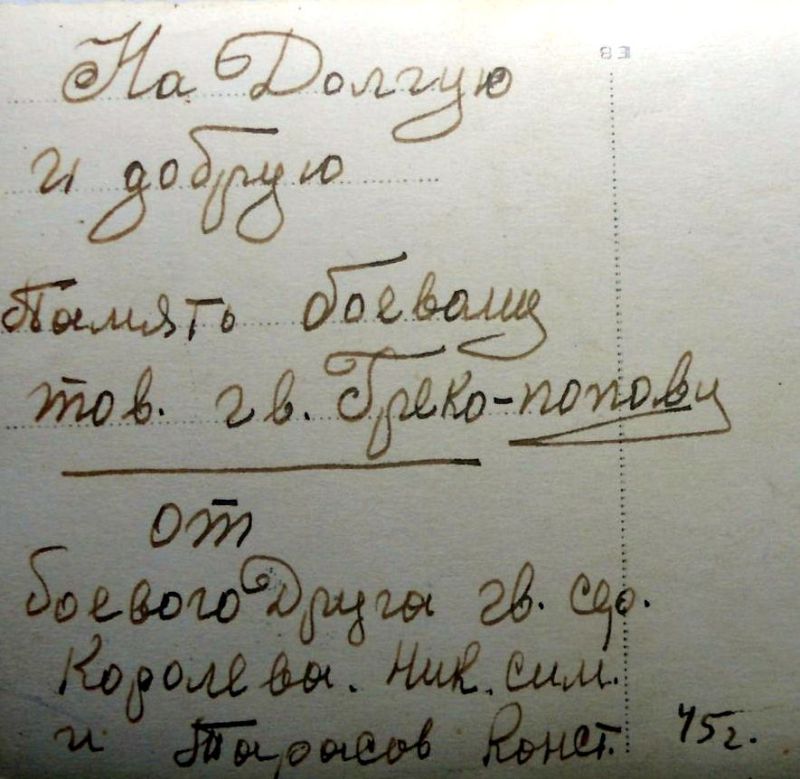 На Долгую
и добрую
Память боевому
тов. гв. Греко-попову
от
боевого Друга гв.
Королева. Ник. сим.
и Тарасов Конст. 45г.